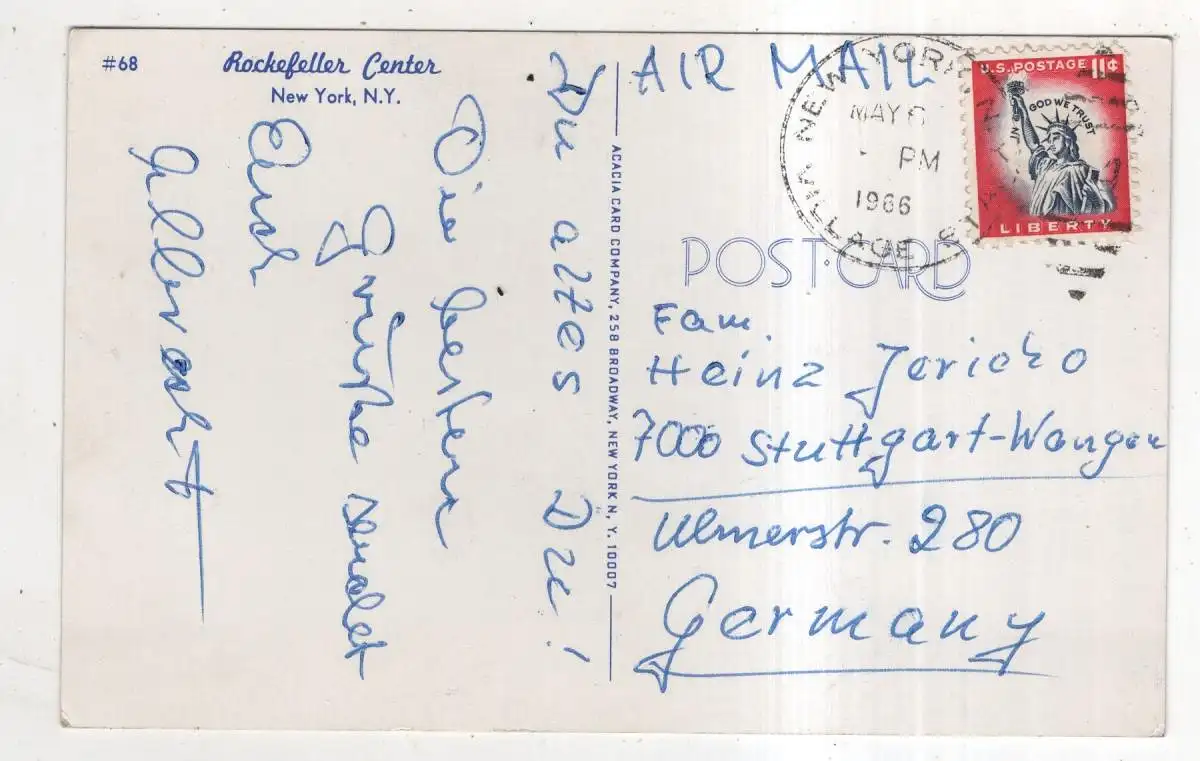 #68
Rockefeller Center
New York, N.Y.
Du altes Du!
Die besten
Grüße sendet
Euch
Albrecht
ACACIA CARD COMPANY, 258 BROADWAY, NEW YORK N. Y. 10007
AIR MAIL
NEW YORK
MAY 6
PM
1966
VILLAGE STA.
U.S. POSTAGE 11¢
IN GOD WE TRUST
LIBERTY
POST CARD
Fam.
Heinz Jericho
7000 Stuttgart-Wangen
Ulmerstr. 280
Germany